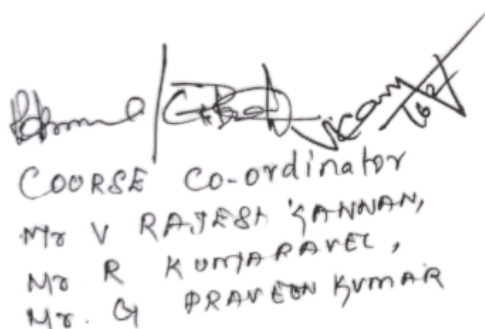 COURSE Co-ordinator
Mr V RAJESH KANNAN,
Mr R KUMARAVEL,
Mr. G PRAVEEN KUMAR